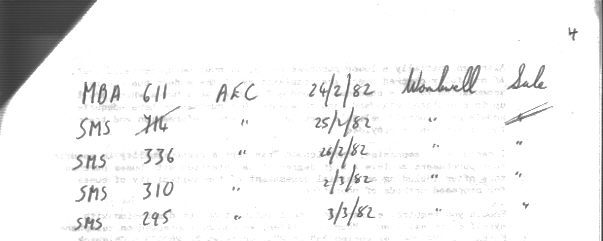 4
MBA 611 AEC 24/2/82 Wombwell Sale
SMS 714 " 25/2/82 "
SMS 336 " 26/2/82 " "
SMS 310 " 2/3/82 " "
SMS 295 " 3/3/82 " "